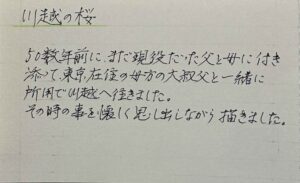 川越の桜
50数年前に、まだ現役だった父と母に付き
添って、東京在住の母方の大叔父と一緒に
所用で川越へ往きました。
その時の事を懐しく思い出しながら描きました。